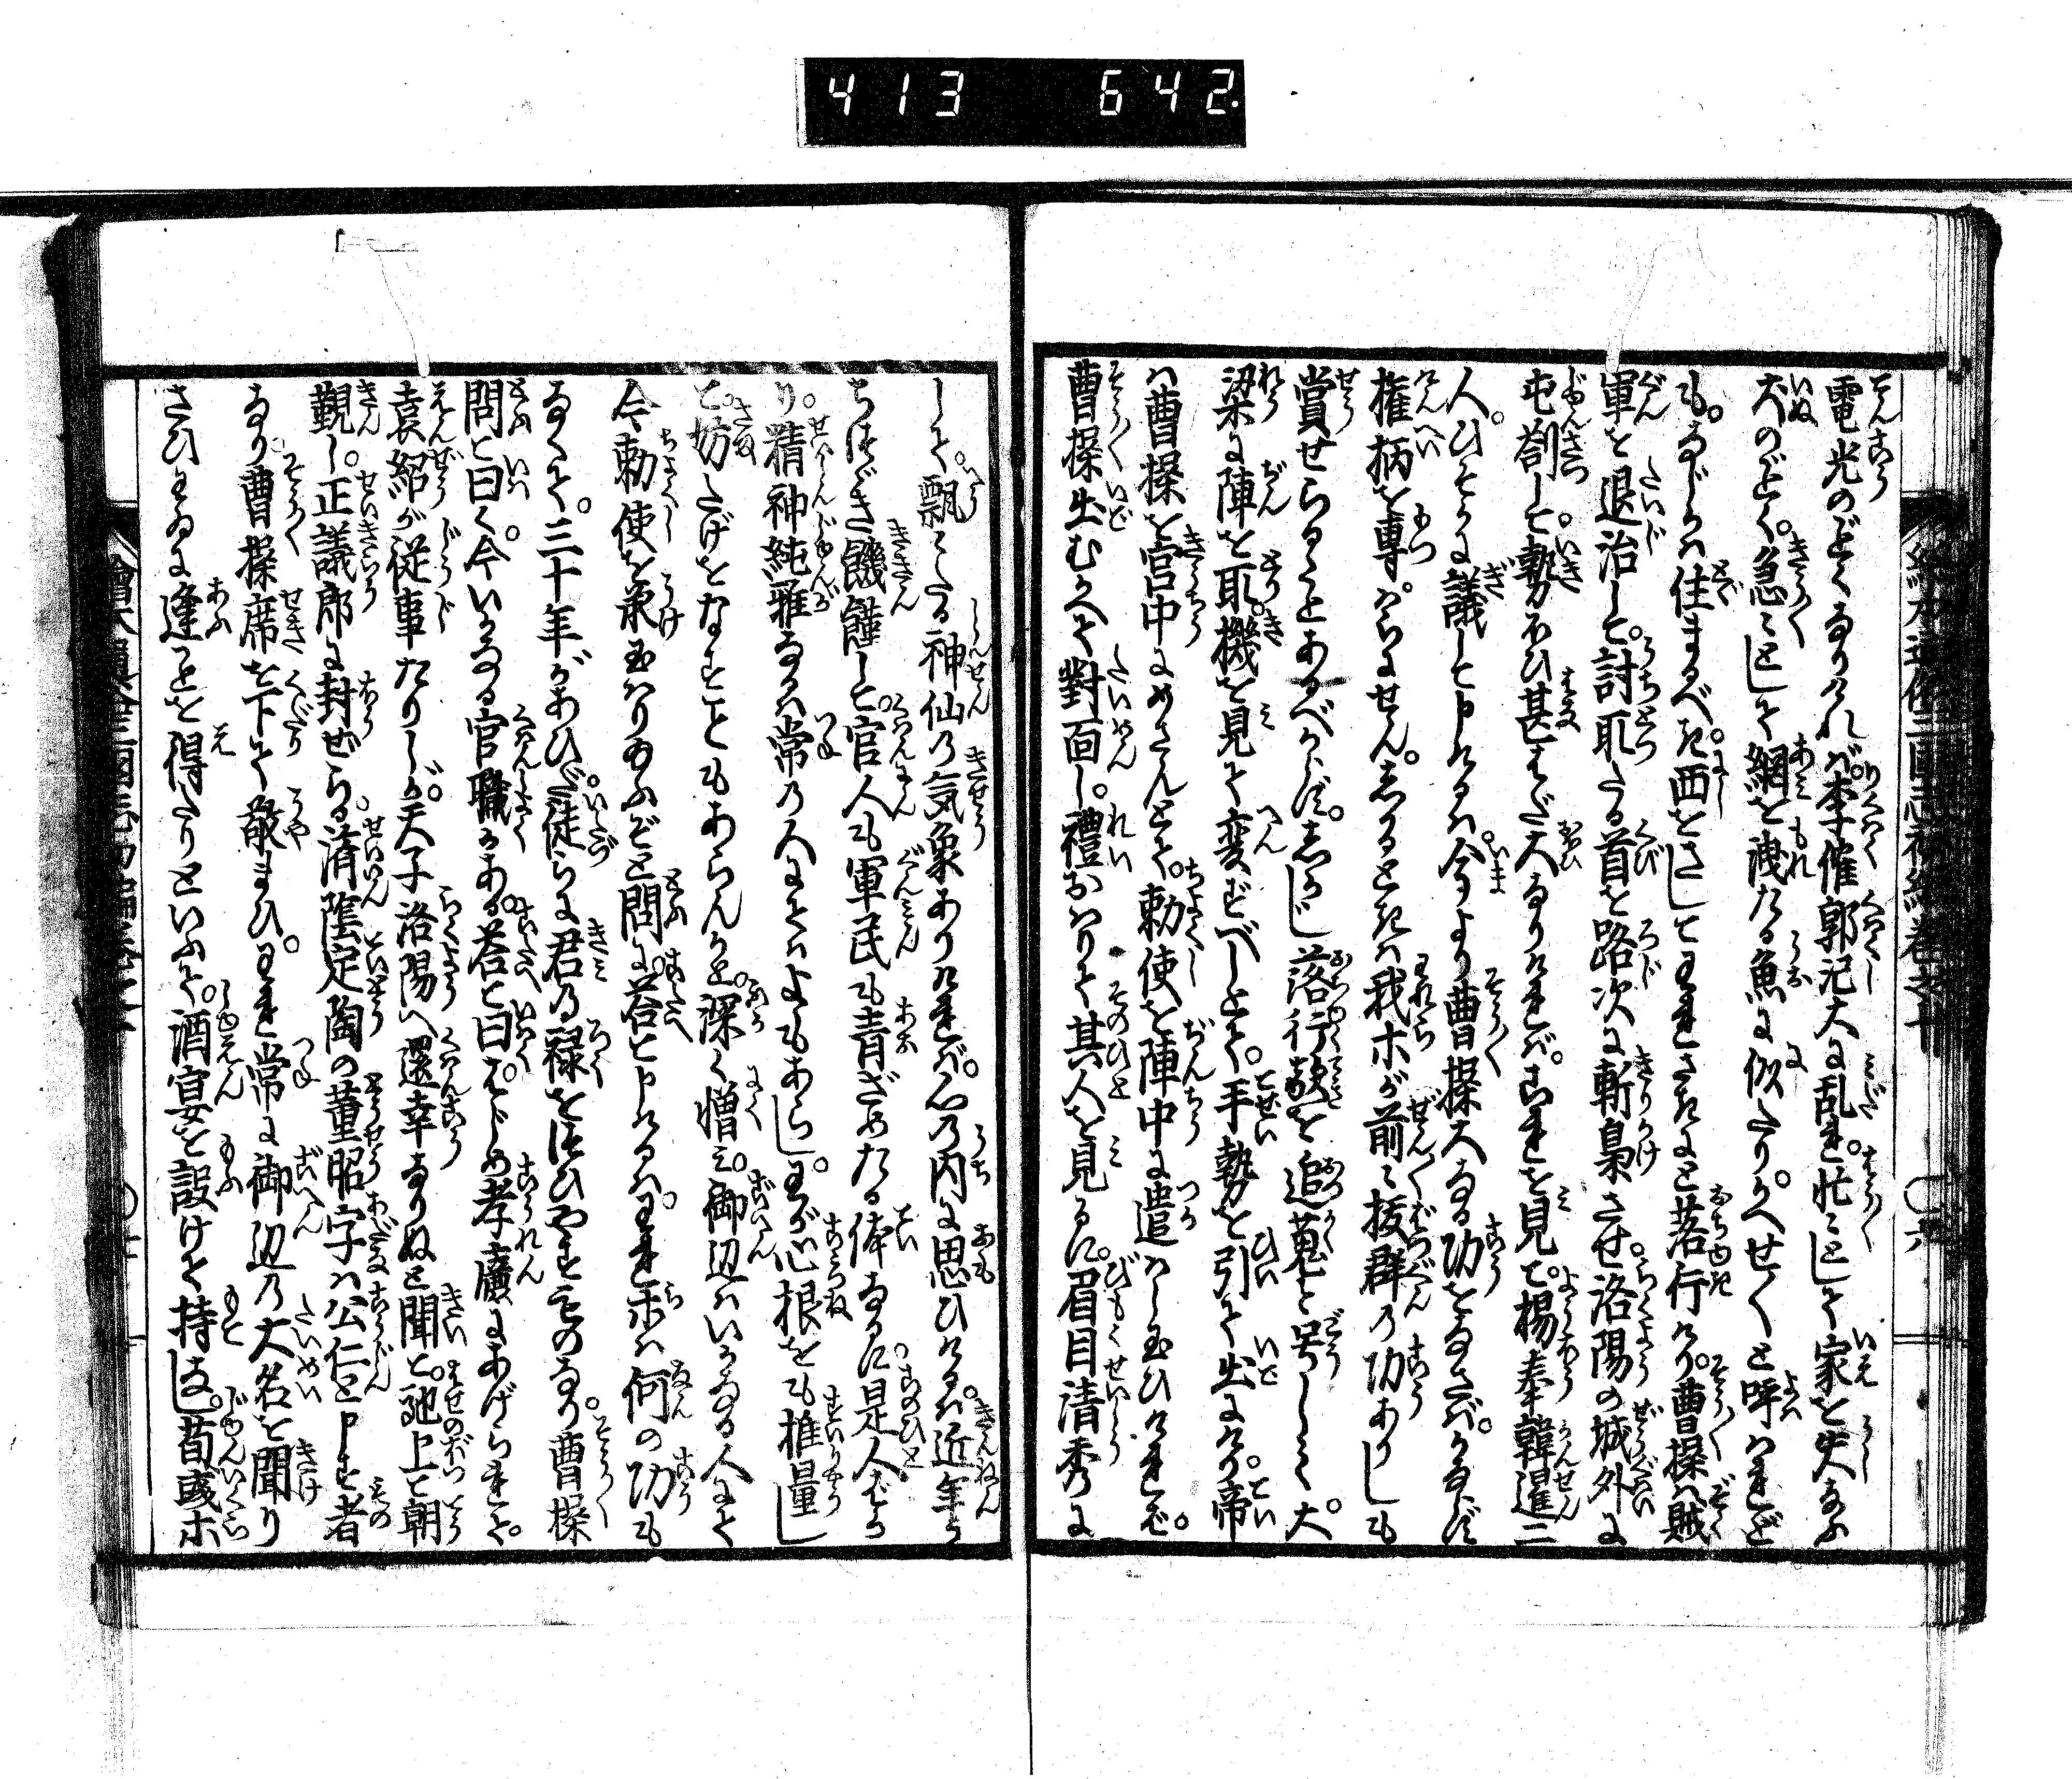 413 642
電光のごとくなりけれバ。李傕郭汜大に乱れ。忙ミとして家を失なふ
犬のごとく。急ミとして網を洩たる魚に似たり。かへせ〳〵と呼ハれども
も。なじかハ住まるべき。西をさしてわれさきにと落行けり。曹操ハ賊
軍を退治して。討取たる首を路次に斬梟させ。洛陽の城外に
屯劄して。勢ひ甚はだ大なりけれバ。これを見て。楊奉韓暹二
人。ひそかに議して申けるハ。今より曹操大なる功をなさバ。かならず
権柄を専ハらにせん。しかるときハ我ホが前々抜群の功ありしも
賞せらるゝことあるべからず。しかじ落行敵を追蒐と号して。大
梁に陣を取。機を見て変ずべしとて。手勢を引て出にけり。帝
ハ曹操を宮中にめさんとて。勅使を陣中に遣ハし玉ひけれバ。
曹操出むかへて對面し。禮おハりて其人を見るに。眉目清秀に
して。飄たる神仙乃気象ありけれバ。心乃内に思ひけるハ。近年う
ちつゞき饑饉して。官人も軍民も青ざめたる体なるに。是人ばか
り。精神純雅なるハ常乃人にてハよもあらじ。わが心根をも推量し
て。妨たげをなすこともあらんかと。深く憎ミ。御辺ハいかなる人にて
今勅使を承玉ハりゐふぞと問に。答と申けるハ。われホハ何の功も
なくて。三十年があひだ。徒らに君乃禄をつひやすものなり。曹操
問と曰く。今いかなる官職にかある。答と曰。はじめ孝廉にあげられて。
袁紹が従事たりしが。天子洛陽へ還幸なりぬと聞と。馳上て朝
覲し。正議郎に封ぜらる。済陰定陶の董昭字ハ公仁と申す者
なり。曹操席を下て敬まひ。われ常に御辺乃大名を聞り
さひわひに逢ことを得たりといふて。酒宴を設けて持はし。荀彧ホ